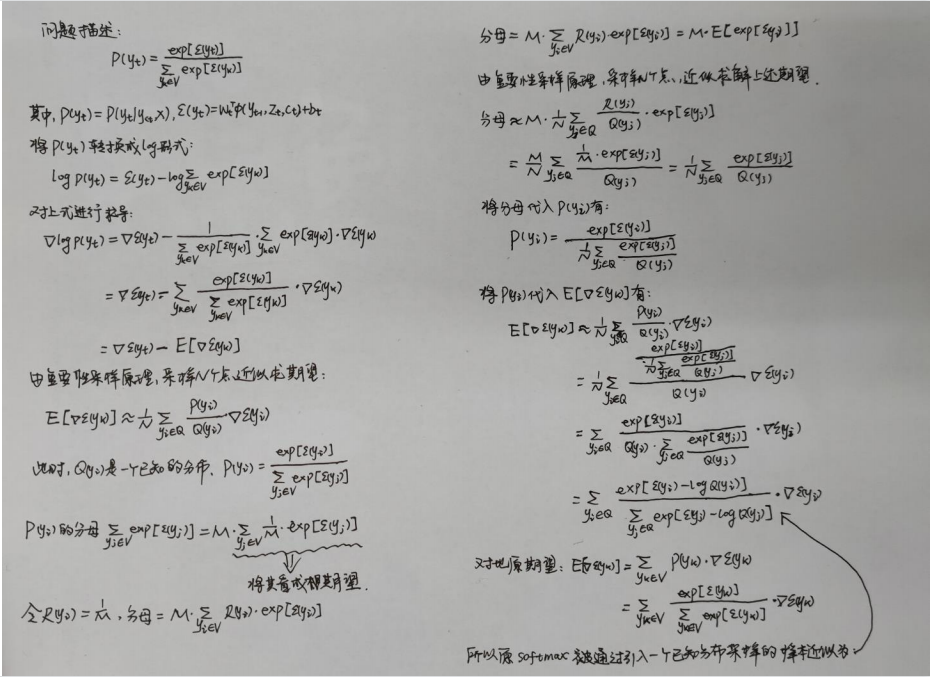 问题描述:
P(y_t) = exp[ε(y_t)] / Σ_{y_k∈V} exp[ε(y_k)]
其中, P(y_t) = P(y_t|y_{<t}, x), ε(y_t) = w_t^T φ(y_{t-1}, z_t, c_t) + b_t
将P(y_t)转换成log形式:
log P(y_t) = ε(y_t) - log Σ_{y_k∈V} exp[ε(y_k)]
对上式进行求导:
∇log P(y_t) = ∇ε(y_t) - 1 / Σ_{y_k∈V} exp[ε(y_k)] · Σ_{y_k∈V} exp[ε(y_k)] · ∇ε(y_k)
= ∇ε(y_t) - Σ_{y_k∈V} exp[ε(y_k)] / Σ_{y_k∈V} exp[ε(y_k)] · ∇ε(y_k)
= ∇ε(y_t) - E[∇ε(y_k)]
由重要性采样原理, 采样N个点, 近似求期望:
E[∇ε(y_k)] ≈ 1/N Σ_{y_i∈Q} P(y_i)/Q(y_i) ∇ε(y_i)
此时, Q(y_i)是一个已知的分布, P(y_i) = exp[ε(y_i)] / Σ_{y_j∈V} exp[ε(y_j)]
P(y_i)的分母 Σ_{y_j∈V} exp[ε(y_j)] = M · Σ_{y_j∈V} 1/M · exp[ε(y_j)]
将其看成期望.
令R(y_j) = 1/M, 分母 = M · Σ_{y_j∈V} R(y_j) · exp[ε(y_j)]
分母 = M · Σ_{y_j∈V} R(y_j) · exp[ε(y_j)] = M · E[exp[ε(y_j)]]
由重要性采样原理, 采样N个点, 近似求解上述期望.
分母 ≈ M · 1/N Σ_{y_j∈Q} R(y_j)/Q(y_j) · exp[ε(y_j)]
= M/N Σ_{y_j∈Q} 1/M · exp[ε(y_j)] / Q(y_j) = 1/N Σ_{y_j∈Q} exp[ε(y_j)] / Q(y_j)
将分母代入P(y_i)有:
P(y_i) = exp[ε(y_i)] / 1/N Σ_{y_j∈Q} exp[ε(y_j)]/Q(y_j)
将P(y_i)代入E[∇ε(y_k)]有:
E[∇ε(y_k)] ≈ 1/N Σ_{y_i∈Q} P(y_i)/Q(y_i) · ∇ε(y_i)
= 1/N Σ_{y_i∈Q} (exp[ε(y_i)] / 1/N Σ_{y_j∈Q} exp[ε(y_j)]/Q(y_j)) / Q(y_i) ∇ε(y_i)
= Σ_{y_i∈Q} exp[ε(y_i)] / (Q(y_i) · Σ_{y_j∈Q} exp[ε(y_j)]/Q(y_j)) · ∇ε(y_i)
= Σ_{y_i∈Q} exp[ε(y_i) - log Q(y_i)] / Σ_{y_j∈Q} exp[ε(y_j) - log Q(y_j)] · ∇ε(y_i)
对比原期望: E[∇ε(y_k)] = Σ_{y_k∈V} P(y_k) · ∇ε(y_k)
= Σ_{y_k∈V} exp[ε(y_k)] / Σ_{y_k∈V} exp[ε(y_k)] · ∇ε(y_k)
所以原softmax被通过引入一个已知分布采样的样本近似为: